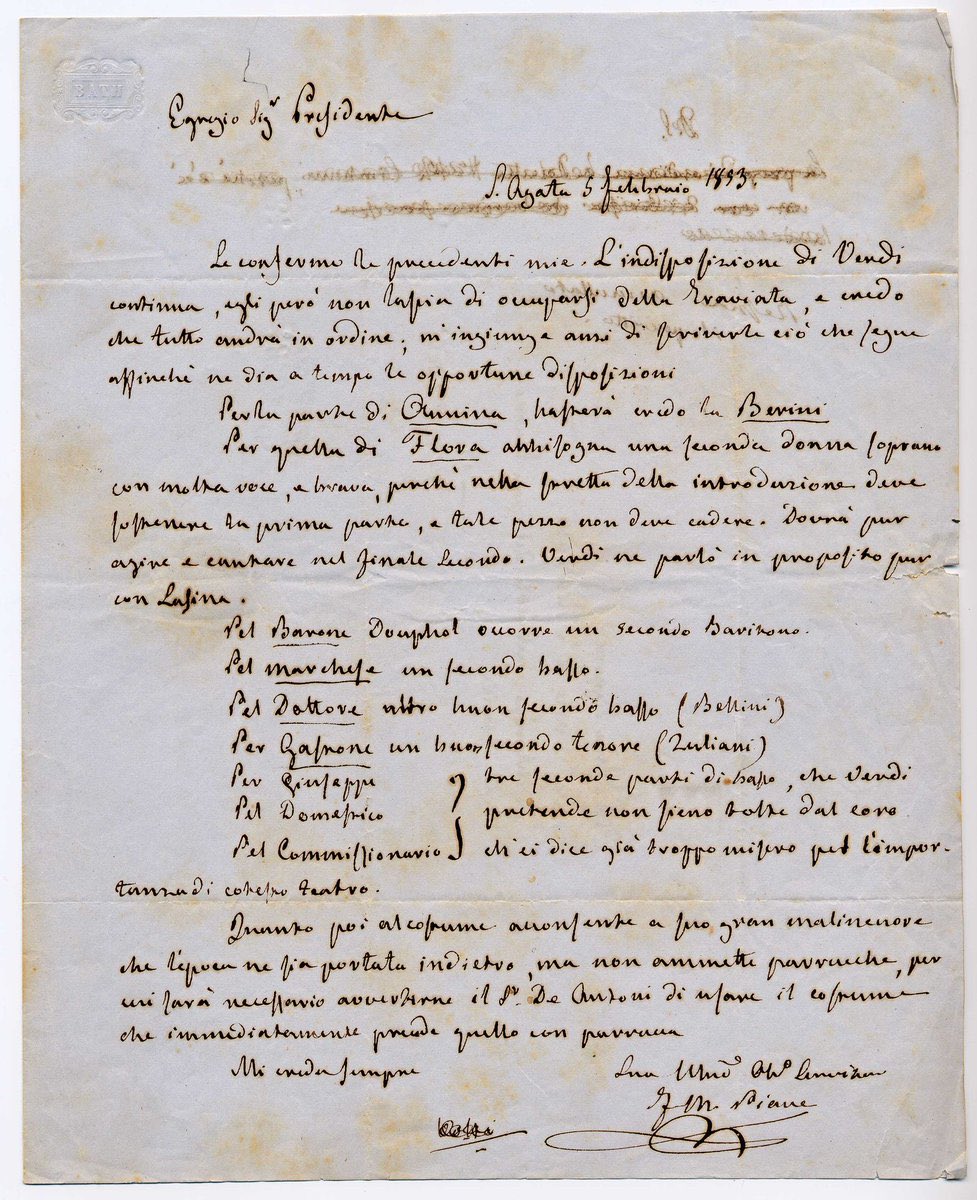 BATH
Egregio Sigr Presidente
S. Agata 5 Febbraio 1853.
Le confermo le precedenti mie. L'indisposizione di Verdi
continua, egli però non lascia di occuparsi della Traviata, e credo
che tutto andrà in ordine; m'ingiunge anzi di scriverle ciò che segue
affinchè ne dia a tempo le opportune disposizioni
Per la parte di Annina, basterà credo la Berini
Per quella di Flora abbisogna una seconda donna soprano
con molta voce, e brava, perchè nella stretta della introduzione deve
sostenere la prima parte, e tale pezzo non deve cadere. Dovrà pur
agire e cantare nel finale secondo. Verdi ne parlò in proposito pur
con Lasina.
Pel Barone Douphol occorre un secondo Baritono.
Pel Marchese un secondo basso.
Pel Dottore altro buon secondo basso (Bellini)
Per Gastone un buon secondo tenore (Zuliani)
Per Giuseppe } tre seconde parti di basso, che Verdi
Pel Domestico pretende non sieno tolte dal coro
Pel Commissionario ch'ei dice già troppo misero per l'impor-
tanza di cotesto teatro.
Quanto poi al costume acconsente a suo gran malincuore
che l'epoca ne sia portata indietro, ma non ammette parrucche, per
cui sarà necessario avvertirne il Sr. De Antoni di usare il costume
che immediatamente precede quello con parrucca
Mi creda sempre
Suo
F M Piave